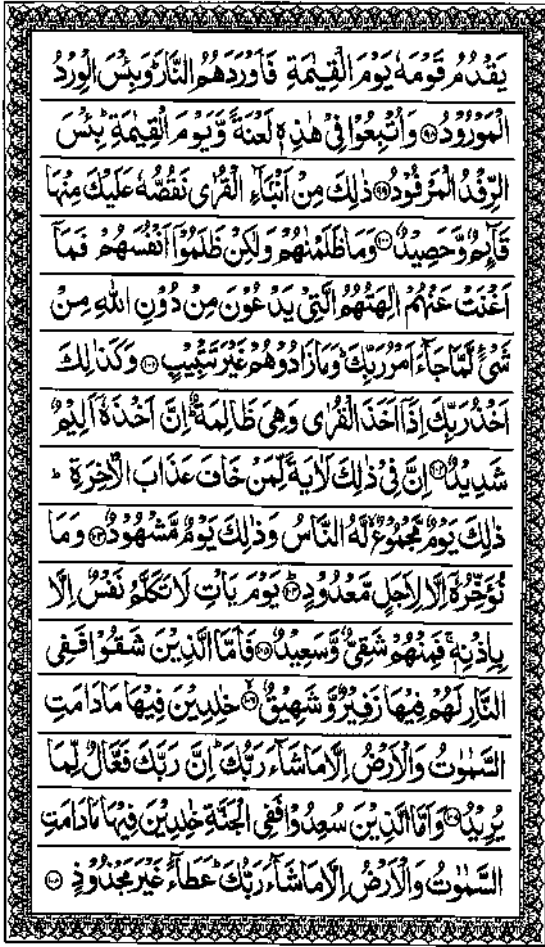 يَقْدُمُ قَوْمَهٗ يَوْمَ الْقِيٰمَةِ فَاَوْرَدَهُمُ النَّارَ ؕ وَبِئْسَ الْوِرْدُ
الْمَوْرُوْدُ ﴿۹۸﴾ وَاُتْبِعُوْا فِیْ هٰذِهٖ لَعْنَةً وَّيَوْمَ الْقِيٰمَةِ ؕ بِئْسَ
الرِّفْدُ الْمَرْفُوْدُ ﴿۹۹﴾ ذٰلِكَ مِنْ اَنْۢبَآءِ الْقُرٰى نَقُصُّهٗ عَلَيْكَ مِنْهَا
قَآئِمٌ وَّحَصِيْدٌ ﴿۱۰۰﴾ وَمَا ظَلَمْنٰهُمْ وَلٰكِنْ ظَلَمُوْۤا اَنْفُسَهُمْ فَمَاۤ
اَغْنَتْ عَنْهُمْ اٰلِهَتُهُمُ الَّتِیْ يَدْعُوْنَ مِنْ دُوْنِ اللّٰهِ مِنْ
شَیْءٍ لَّمَّا جَآءَ اَمْرُ رَبِّكَ ؕ وَمَا زَادُوْهُمْ غَيْرَ تَتْبِيْبٍ ﴿۱۰۱﴾ وَكَذٰلِكَ
اَخْذُ رَبِّكَ اِذَاۤ اَخَذَ الْقُرٰى وَهِیَ ظَالِمَةٌ ؕ اِنَّ اَخْذَهٗۤ اَلِيْمٌ
شَدِيْدٌ ﴿۱۰۲﴾ اِنَّ فِیْ ذٰلِكَ لَاٰيَةً لِّمَنْ خَافَ عَذَابَ الْاٰخِرَةِ ؕ
ذٰلِكَ يَوْمٌ مَّجْمُوْعٌ ۙ لَّهُ النَّاسُ وَذٰلِكَ يَوْمٌ مَّشْهُوْدٌ ﴿۱۰۳﴾ وَمَا
نُؤَخِّرُهٗۤ اِلَّا لِاَجَلٍ مَّعْدُوْدٍ ﴿۱۰۴﴾ يَوْمَ يَاْتِ لَا تَكَلَّمُ نَفْسٌ اِلَّا
بِاِذْنِهٖ ۚ فَمِنْهُمْ شَقِیٌّ وَّسَعِيْدٌ ﴿۱۰۵﴾ فَاَمَّا الَّذِيْنَ شَقُوْا فَفِی
النَّارِ لَهُمْ فِيْهَا زَفِيْرٌ وَّشَهِيْقٌ ﴿۱۰۶﴾ خٰلِدِيْنَ فِيْهَا مَا دَامَتِ
السَّمٰوٰتُ وَالْاَرْضُ اِلَّا مَا شَآءَ رَبُّكَ ؕ اِنَّ رَبَّكَ فَعَّالٌ لِّمَا
يُرِيْدُ ﴿۱۰۷﴾ وَاَمَّا الَّذِيْنَ سُعِدُوْا فَفِی الْجَنَّةِ خٰلِدِيْنَ فِيْهَا مَا دَامَتِ
السَّمٰوٰتُ وَالْاَرْضُ اِلَّا مَا شَآءَ رَبُّكَ ؕ عَطَآءً غَيْرَ مَجْذُوْذٍ ﴿۱۰۸﴾